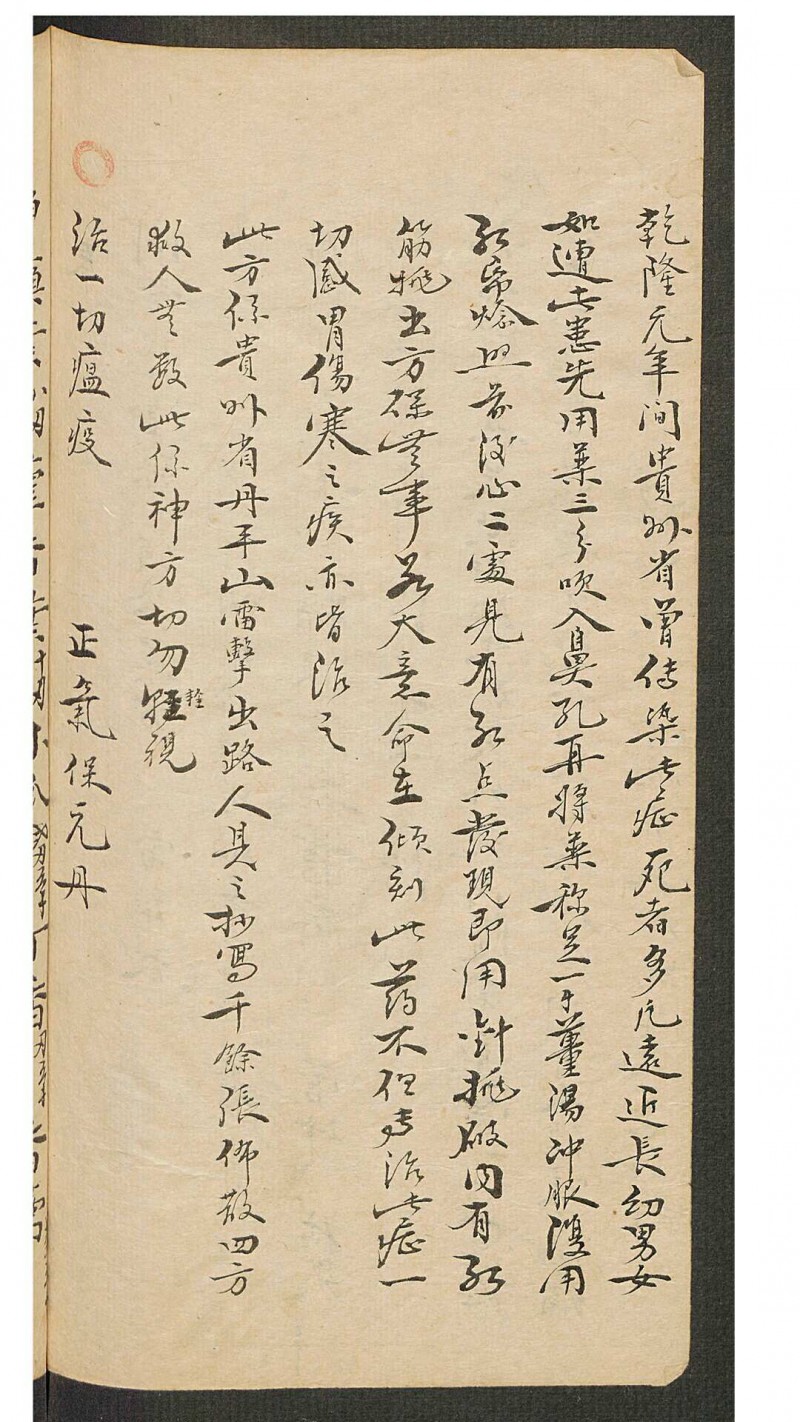 乾隆元年间貴州省曾傳染此症死者多凡遠近長幼男女
如遭此患先用薬三分吹入鼻孔再将薬称足一錢薑湯冲服後用
紅帋燃照前後心二處見有紅点發現即用針挑破内有紅
筋挑出方保無事若大意命在傾刻此药不但専治此症一
切感冒傷寒之疾亦皆治之
此方係貴州省丹平山雷擊出路人見之抄寫千餘張佈散四方
救人無数此係神方切勿輕視
輕
治一切瘟疫 正氣保元丹